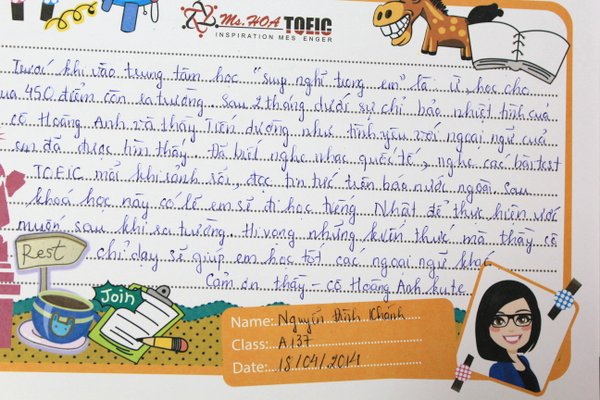 Ms. HOA TOEIC
INSPIRATION MESSENGER
Trước khi vào trung tâm học "suy nghĩ trong em" là: ừ, học cho
qua 450 điểm còn ra trường. Sau 2 tháng dưới sự chỉ bảo nhiệt tình của
cô Hoàng Anh và thầy Tiến dường như tình yêu với ngoại ngữ của
em đã được tìm thấy. Đã biết nghe nhạc quốc tế, nghe các bài test
TOEIC mỗi khi rảnh rỗi, đọc tin tức trên báo nước ngoài. Sau
khoá học này có lẽ em sẽ đi học tiếng Nhật để thực hiện ước
muốn sau khi ra trường. Hi vọng những kiến thức mà thầy cô
chỉ dạy sẽ giúp em học tốt các ngoại ngữ khác.
Cảm ơn thầy - cô Hoàng Anh kute
Rest
Join
Name: Nguyễn Đình Khánh
Class: A137
Date: 18/04/2014